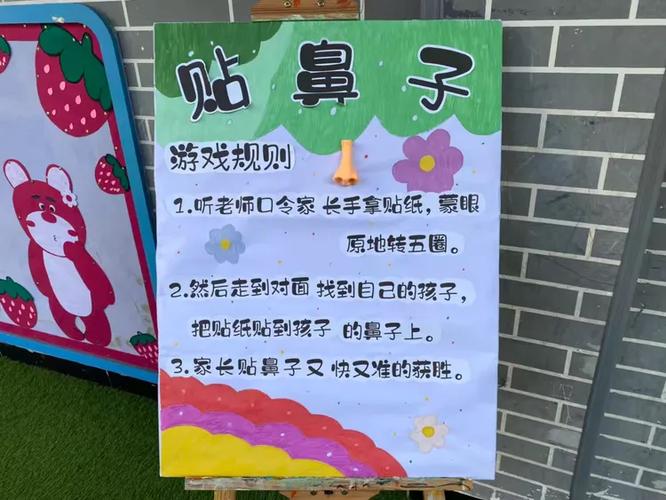 贴鼻子
游戏规则
1.听老师口令家 长手拿贴纸，蒙眼
原地转五圈。
2.然后走到对面 找到自己的孩子，
把贴纸贴到孩子 的鼻子上。
3.家长贴鼻子又 快又准的获胜。